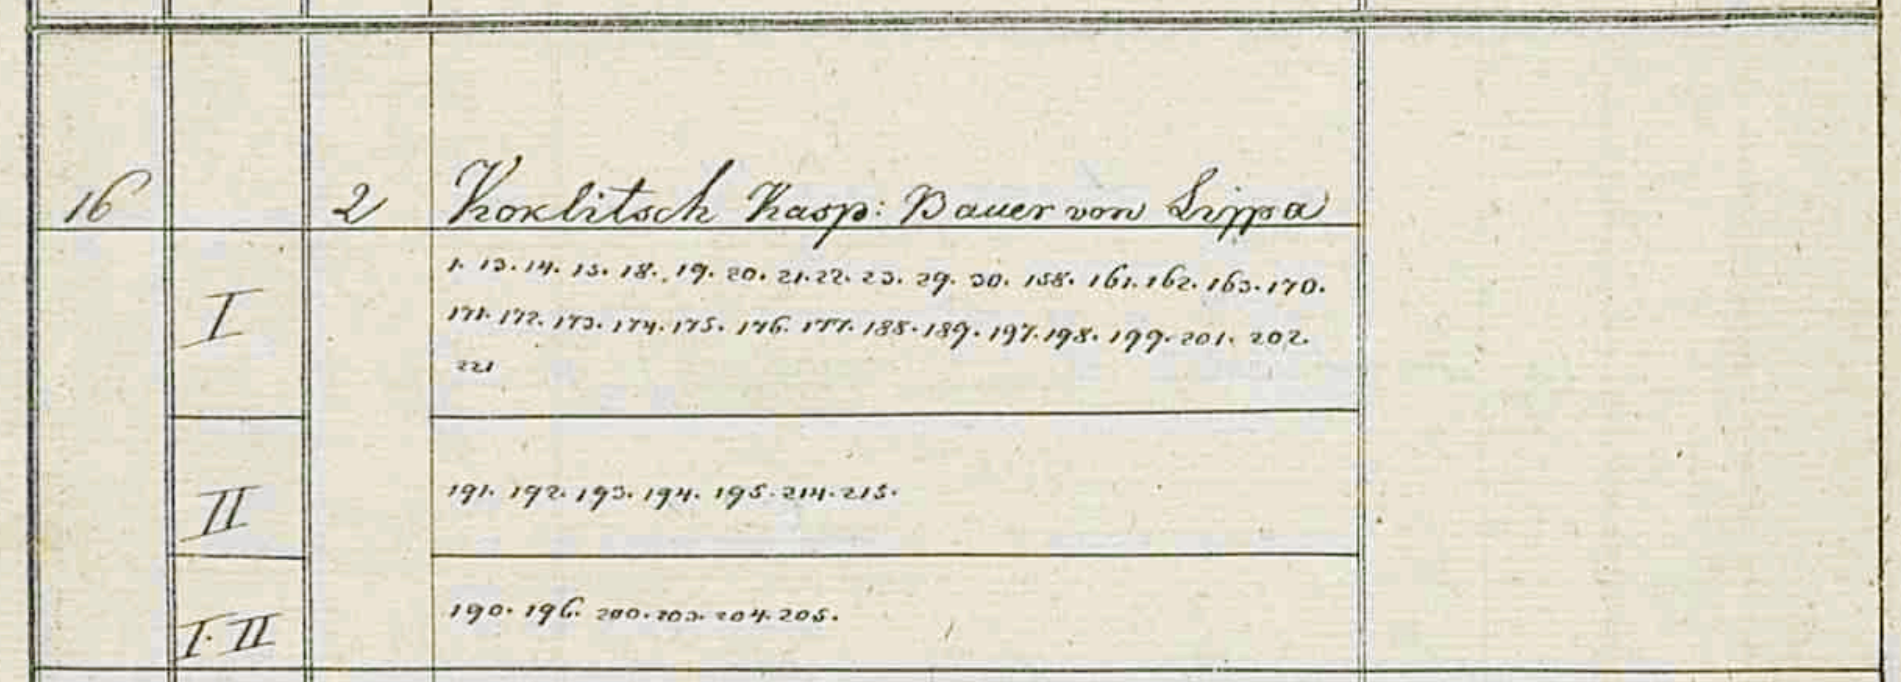 16 2 Koklitsch Kasp: Bauer von Lippa
I 1. 13. 14. 15. 18. 19. 20. 21. 22. 23. 29. 30. 158. 161. 162. 163. 170.
171. 172. 173. 174. 175. 176. 177. 188. 189. 197. 198. 199. 201. 202.
221
II 191. 192. 193. 194. 195. 214. 215.
I. II 190. 196. 200. 203. 204. 205.